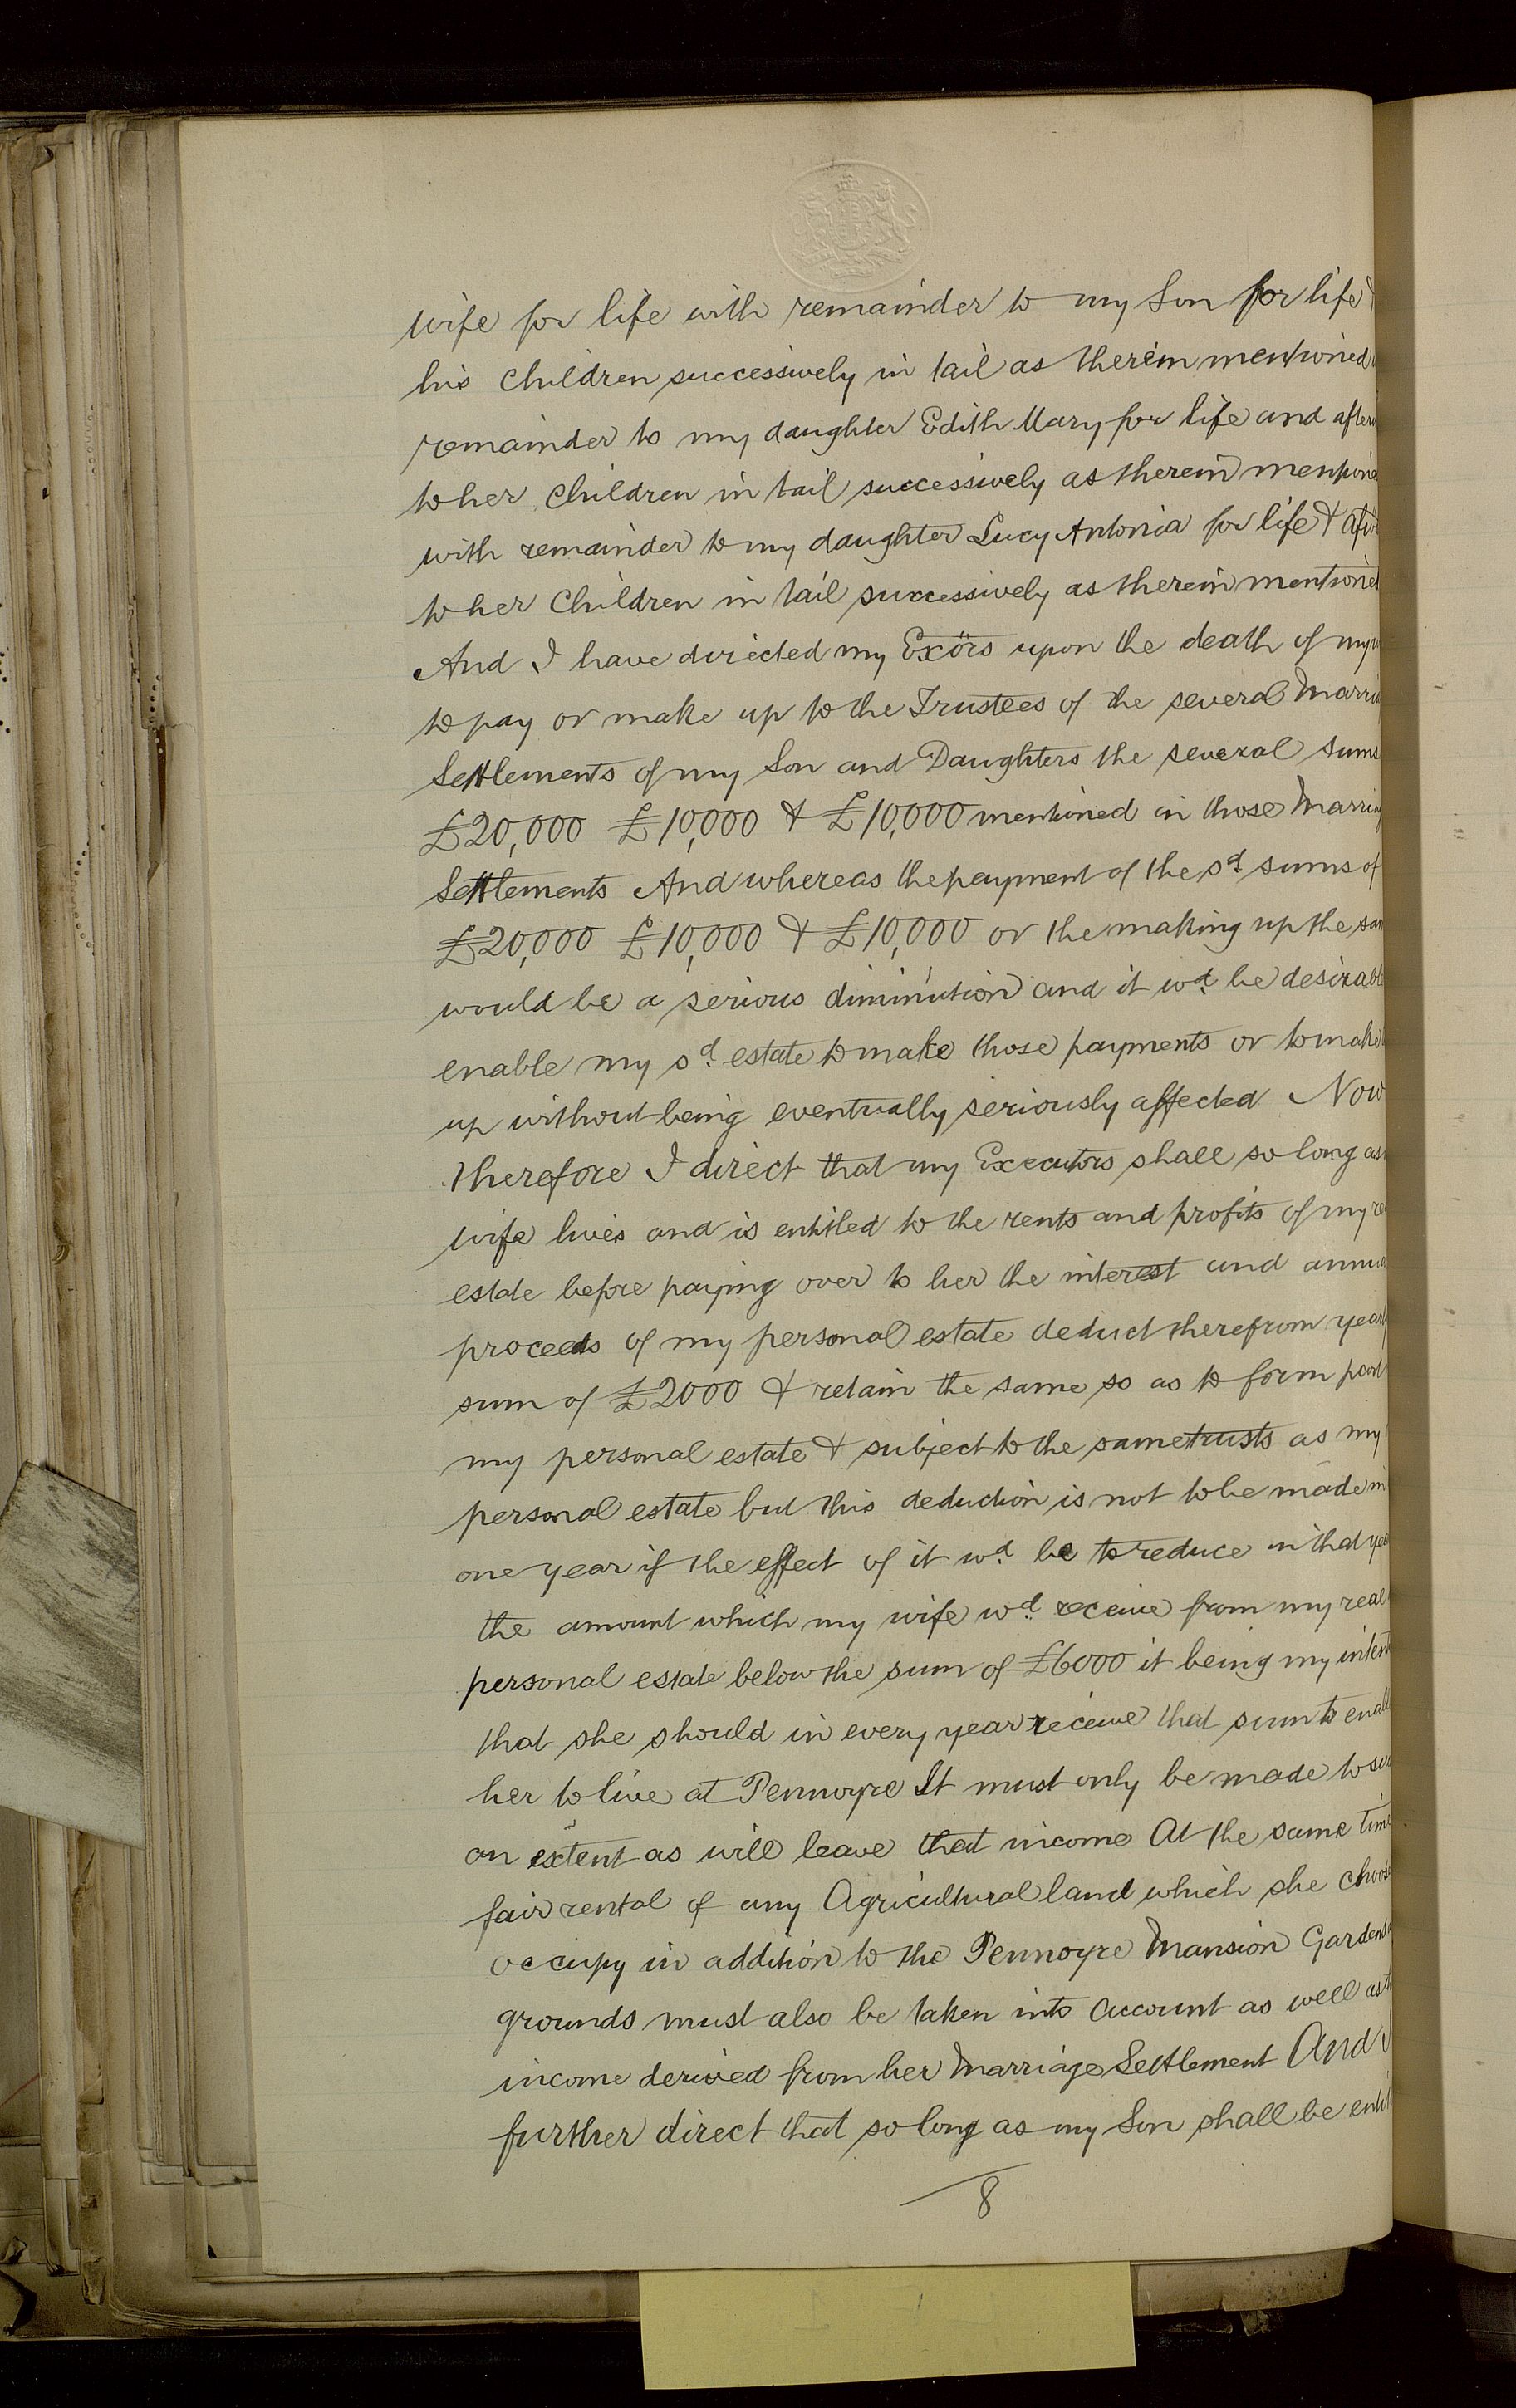 wife for life with remainder to my Son for life &
his Children successively in tail as therein mentioned
remainder to my daughter Edith Mary for life and after
to her Children in tail successively as therein mentione
with remainder to my daughter Lucy Antonia for life &
to her Children in tail successively as therein mentioned
And I have directed my Exors upon the death of my
to pay or make up to the Trustees of the several Marri
Settlements of my Son and Daughters the several sums
£20,000 £10,000 & £10,000 mentioned in those Marriag
Settlements And whereas the payment of the sd. sums of
£20,000 £10,000 & £10,000 or the making up the sam
would be a serious diminution and it wd. be desirabl
enable my sd. estate to make those payments or to make
up without being eventually seriously affected Now
therefore I direct that my Executors shall so long as
wife lives and is entitled to the rents and profits of my re
estate before paying over to her the interest and annua
proceeds of my personal estate deduct therefrom yearly
sum of £2000 & retain the same so as to form part
my personal estate & subject to the same trusts as my
personal estate but this deduction is not to be made in
one year if the effect of it wd. be to reduce in that yea
the amount which my wife wd. receive from my real
personal estate below the sum of £6000 it being my intent
that she should in every year receive that sum to enabl
her to live at Pennoyre It must only be made to suc
an extent as will leave that income At the same time
fair rental of any Agricultural land which she choose
occupy in addition to the Pennoyre Mansion Garden
grounds must also be taken into account as well as
income derived from her Marriage Settlement And
further direct that so long as my Son shall be entit
8